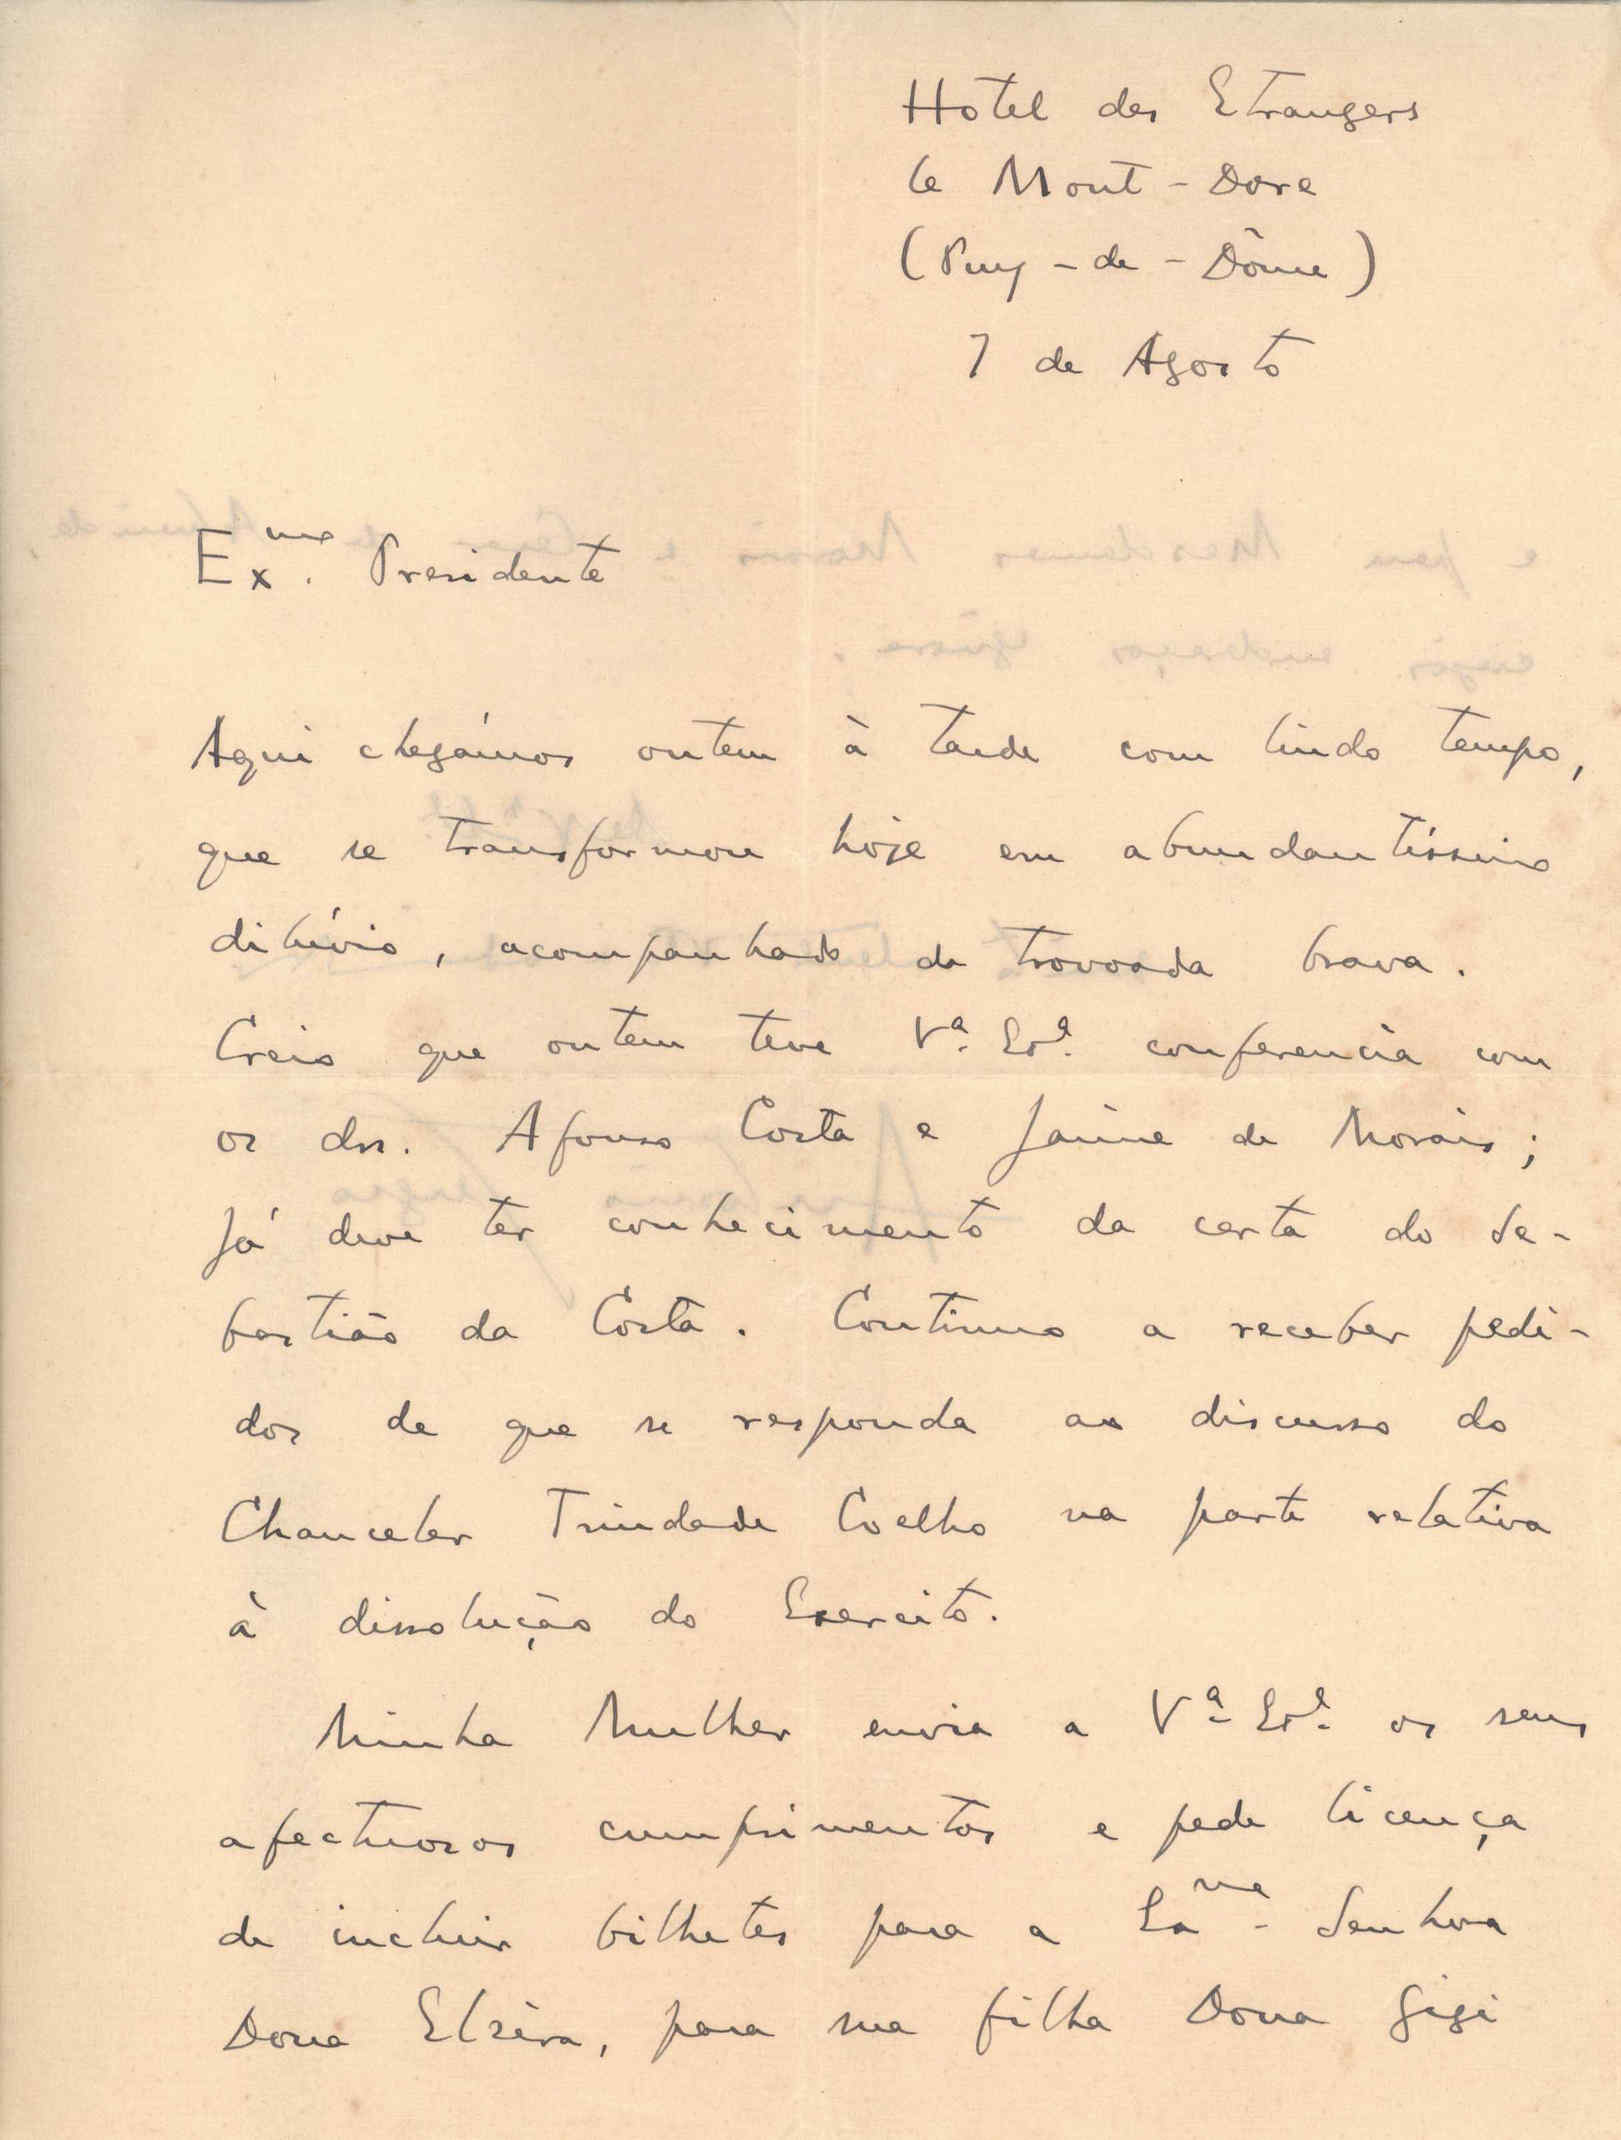 Hotel des Etrangers
le Mont-Dore
(Puy-de-Dôme)
7 de Agosto
Exmo. Presidente
Aqui chegámos ontem à tarde com lindo tempo,
que se transformou hoje em abundantíssimo
dilúvio, acompanhado da trovoada brava.
Creio que ontem teve Vª. Exª. conferencia com
os drs. Afonso Costa e Jaime de Morais;
Já deve ter conhecimento da carta do Se-
bastião da Costa. Continuo a receber pedi-
dos de que se responda ao discurso do
Chanceler Trindade Coelho na parte relativa
à dissolução do Exercito.
Minha Mulher envia a Vª. Exª. os seus
afectuosos cumprimentos e pede licença
de incluir bilhetes para a Exma. Senhora
Dona Elzira, para sua filha Dona Gigi